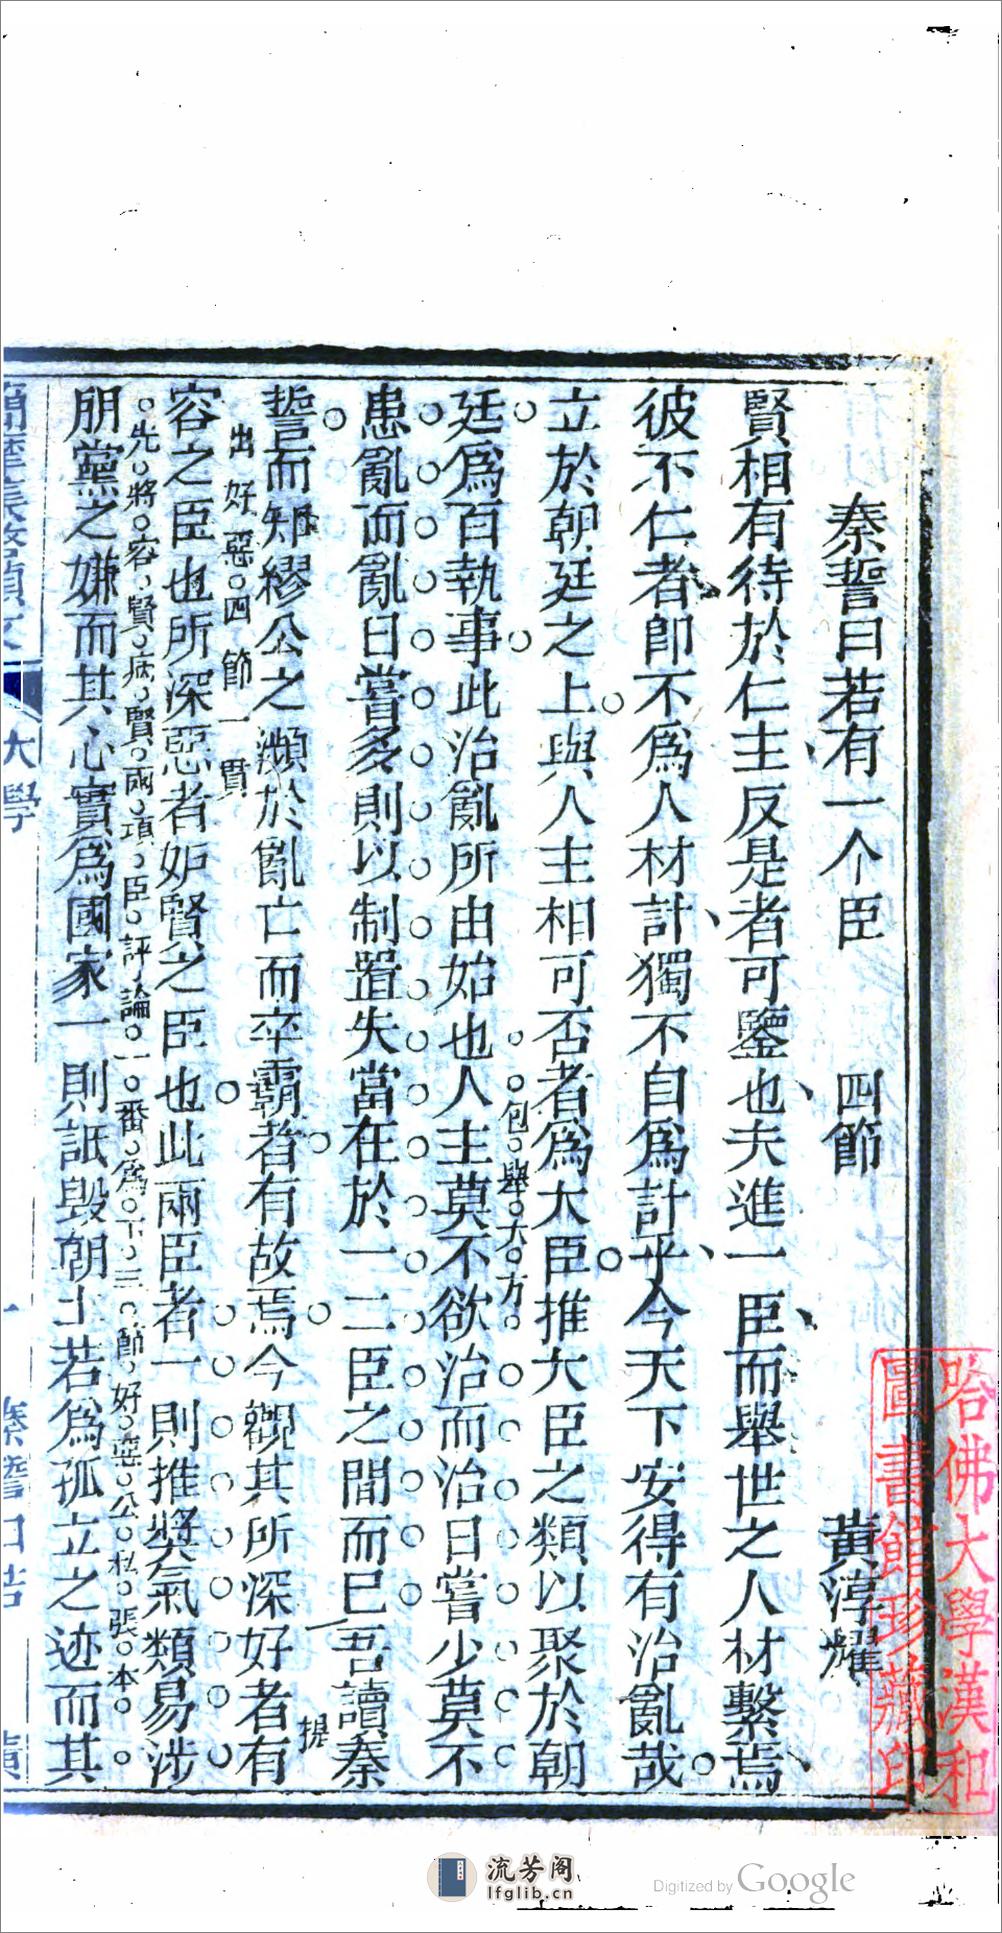 秦誓曰若有一个臣 四節 黃淳耀
賢相有待於仁主反是者可鑒也夫進一臣而舉世之人材繫焉
彼不仁者卽不爲人材計獨不自爲計乎今天下安得有治亂哉
立於朝廷之上與人主相可否者爲大臣推大臣之類以聚於朝
包舉大方
廷爲百執事此治亂所由始也人主莫不欲治而治日嘗少莫不
患亂而亂日嘗多則以制置失當在於一二臣之間而已吾讀秦
提
誓而知繆公之瀕於亂亡而卒霸者有故焉今觀其所深好者有
出好惡四節一貫
容之臣也所深惡者妒賢之臣也此兩臣者一則推奬氣類易涉
先將容賢病賢兩項臣評論一番爲下三節好惡公私張本
朋黨之嫌而其心實爲國家一則詆毀朝士若爲孤立之迹而其
大學
秦誓曰若
哈佛大學漢和
圖書館珍藏印
流芳阁
lfglib.cn
Digitized by Google